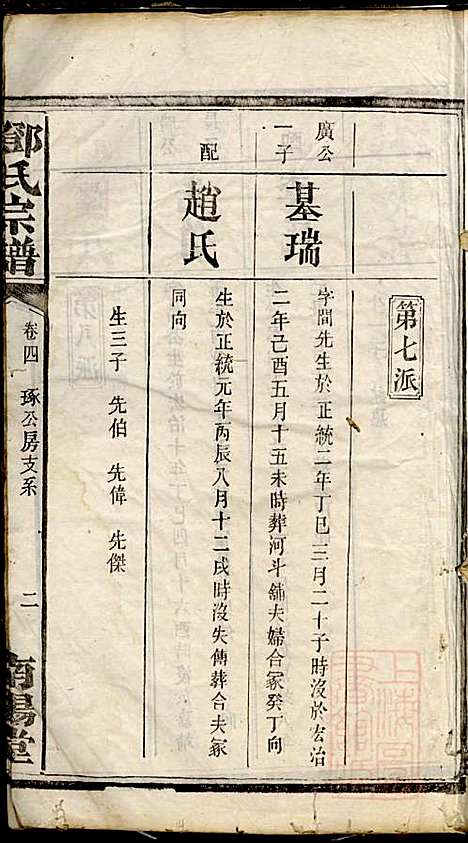 第七派
廣公一子
基瑞
字間先生於正統二年丁巳三月二十子時沒於宏治
二年己酉五月十五未時葬河斗鋪夫婦合冢癸丁向
配
趙氏
生於正統元年丙辰八月十二戌時沒失傳葬合夫冢
同向
生三子 先伯 先偉 先傑
鄒氏宗譜
卷四 琢公房支系
二
南陽堂